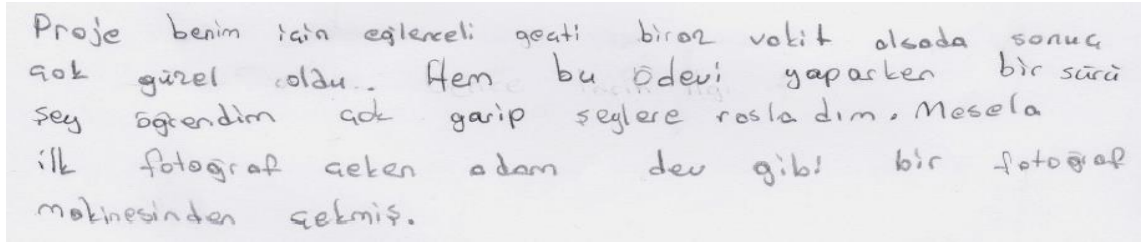 Proje benim için eğlenceli geçti biraz vakit alsada sonuç
çok güzel oldu.. Hem bu ödevi yaparken bir sürü
şey öğrendim çok garip şeylere rasladım. Mesela
ilk fotoğraf çeken adam dev gibi bir fotoğraf
makinesinden çekmiş.